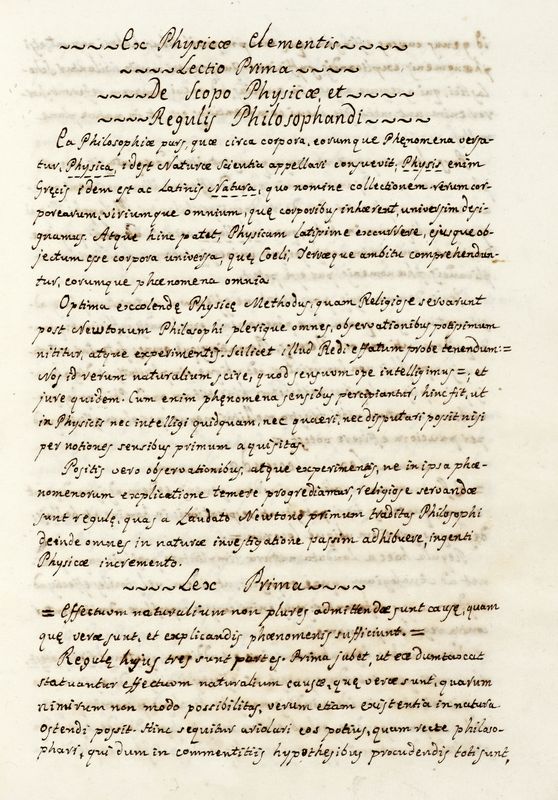 Ex Physicæ Elementis
Lectio Prima
De Scopo Physicæ, et
Regulis Philosophandi
Ea Philosophiæ pars, quæ circa corpora, eorumque Phenomena versa-
tur, Physica, idest Naturæ Scientia appellari consuevit, Physis enim
Gręcis idem est ac Latinis Natura, quo nomine collectionem rerum cor-
porearum, viriumque omnium, quę corporibus inhærent, universim desi-
gnamus. Atque hinc patet, Physicam latissime excurrere, ejusque ob-
jectum esse corpora universa, quę Coeli, Terræque ambitu comprehendun-
tur, eorumque phænomena omnia
Optima excolendę Physicę Methodus, quam Religiose servarunt
post Newtonum Philosophi plerique omnes, observationibus potissimum
nititur, atque experimentis. Scilicet illud Redi effatum probe tenendum: =
Nos id rerum naturalium scire, quod sensuum ope intelligimus =, et
jure quidem. Cum enim phęnomena sensibus percipiantur, hinc fit, ut
in Physicis nec intelligi quidquam, nec quæri, nec disputari possit nisi
per notiones sensibus primum aquisitas.
Positis vero observationibus, atque experimentis, ne in ipsa phæ-
nomenorum explicatione temere progrediamur, religiose servandæ
sunt regulę, quas a Laudato Newtono primum traditas Philosophi
deinde omnes in naturæ investigatione passim adhibuere, ingenti
Physicæ incremento.
Lex Prima
= Effectuum naturalium non plures admittendæ sunt causę, quam
quę veræ sunt, et explicandis phænomenis sufficiunt. =
Regulę hujus tres sunt partes. Prima jubet, ut eæ dumtaxat
statuantur effectuum naturalium causæ, quę veræ sunt, quarum
nimirum non modo possibilitas, verum etiam existentia in natura
ostendi possit. Hinc sequitur ariolari eos potius, quam recte philoso-
phari, qui dum in commentitiis hypothesibus procudendis toti sunt,